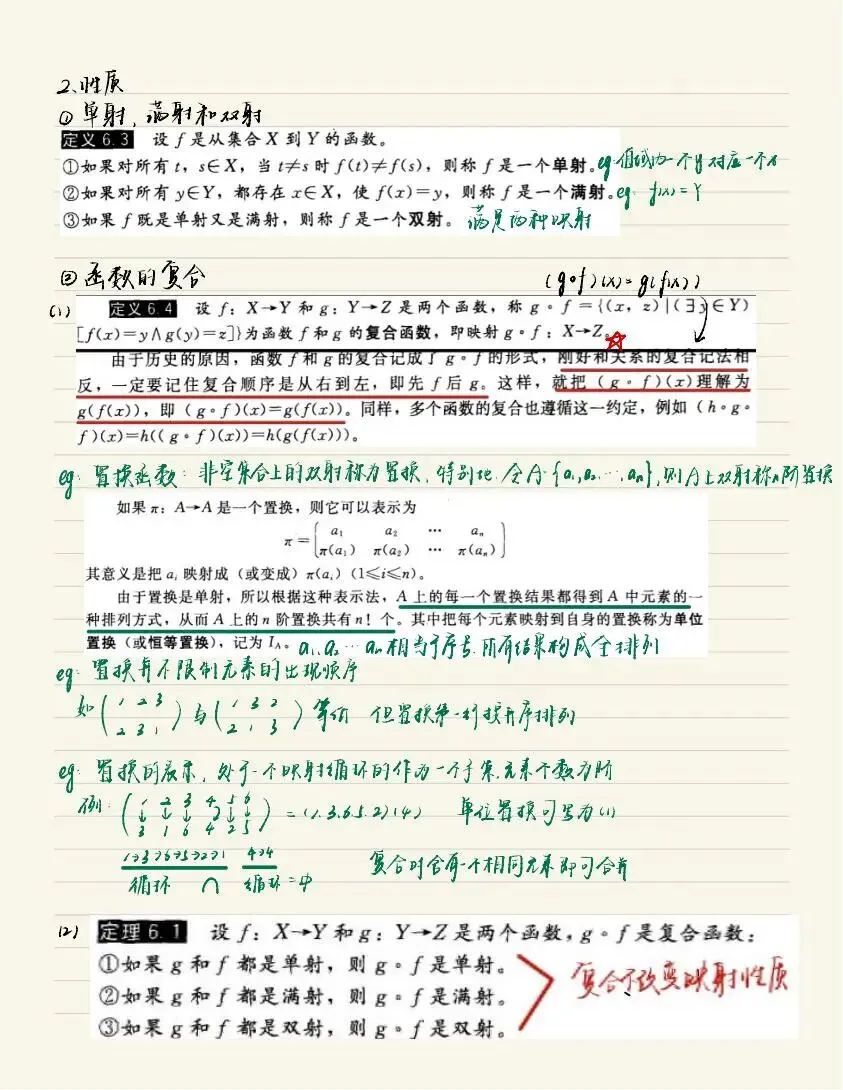 2、性质
① 单射、满射和双射
定义 6.3 设 f 是从集合 X 到 Y 的函数。
①如果对所有 t，s∈X，当 t≠s 时 f(t)≠f(s)，则称 f 是一个单射。eg. 值域为一个y对应一个x
②如果对所有 y∈Y，都存在 x∈X，使 f(x)=y，则称 f 是一个满射。eg. f(x)=Y
③如果 f 既是单射又是满射，则称 f 是一个双射。 满足两种映射
② 函数的复合 (g∘f)(x)=g(f(x))
(1) 定义 6.4 设 f：X→Y 和 g：Y→Z 是两个函数，称 g∘f={(x，z)|(∃y∈Y)
[f(x)=y∧g(y)=z]}为函数 f 和 g 的复合函数，即映射 g∘f：X→Z。
由于历史的原因，函数 f 和 g 的复合记成了 g∘f 的形式，刚好和关系的复合记法相
反，一定要记住复合顺序是从右到左，即先 f 后 g。这样，就把（g∘f）(x)理解为
g(f(x))，即（g∘f）(x)=g(f(x))。同样，多个函数的复合也遵循这一约定，例如（h∘g∘
f）(x)=h((g∘f)(x))=h(g(f(x)))。
eg. 置换函数：非空集合上的双射称为置换，特别地，令A={a₁,a₂…,aₙ},则A上双射称n阶置换
如果 π：A→A 是一个置换，则它可以表示为
π=( a₁ a₂ ⋯ aₙ
π(a₁) π(a₂) ⋯ π(aₙ) )
其意义是把 aᵢ 映射成（或变成）π(aᵢ)（1≤i≤n）。
由于置换是单射，所以根据这种表示法，A 上的每一个置换结果都得到 A 中元素的一
种排列方式，从而 A 上的 n 阶置换共有 n！个。其中把每个元素映射到自身的置换称为单位
置换（或恒等置换），记为 I_A。 a₁,a₂…aₙ相当于序号，所有结果构成全排列
eg. 置换并不限制元素的出现顺序
如 ( 1 2 3 ) 与 ( 1 3 2 ) 等价 但置换第一行按升序排列
( 2 3 1 ) ( 2 1 3 )
eg. 置换的表示，处于一个映射循环的作为一个子集，元素个数为阶
例：( 1 2 3 4 5 6 ) =(1.3.6.5.2)(4) 单位置换可写为(1)
↓ ↓ ↓ ↓ ↓ ↓
3 1 6 4 2 5
1→3→6→5→2→1 4→4 复合时含有一个相同元素即可合并
循环 ∩ 循环=ф
(2) 定理 6.1 设 f：X→Y 和 g：Y→Z 是两个函数，g∘f 是复合函数：
①如果 g 和 f 都是单射，则 g∘f 是单射。
②如果 g 和 f 都是满射，则 g∘f 是满射。 复合不改变映射性质
③如果 g 和 f 都是双射，则 g∘f 是双射。